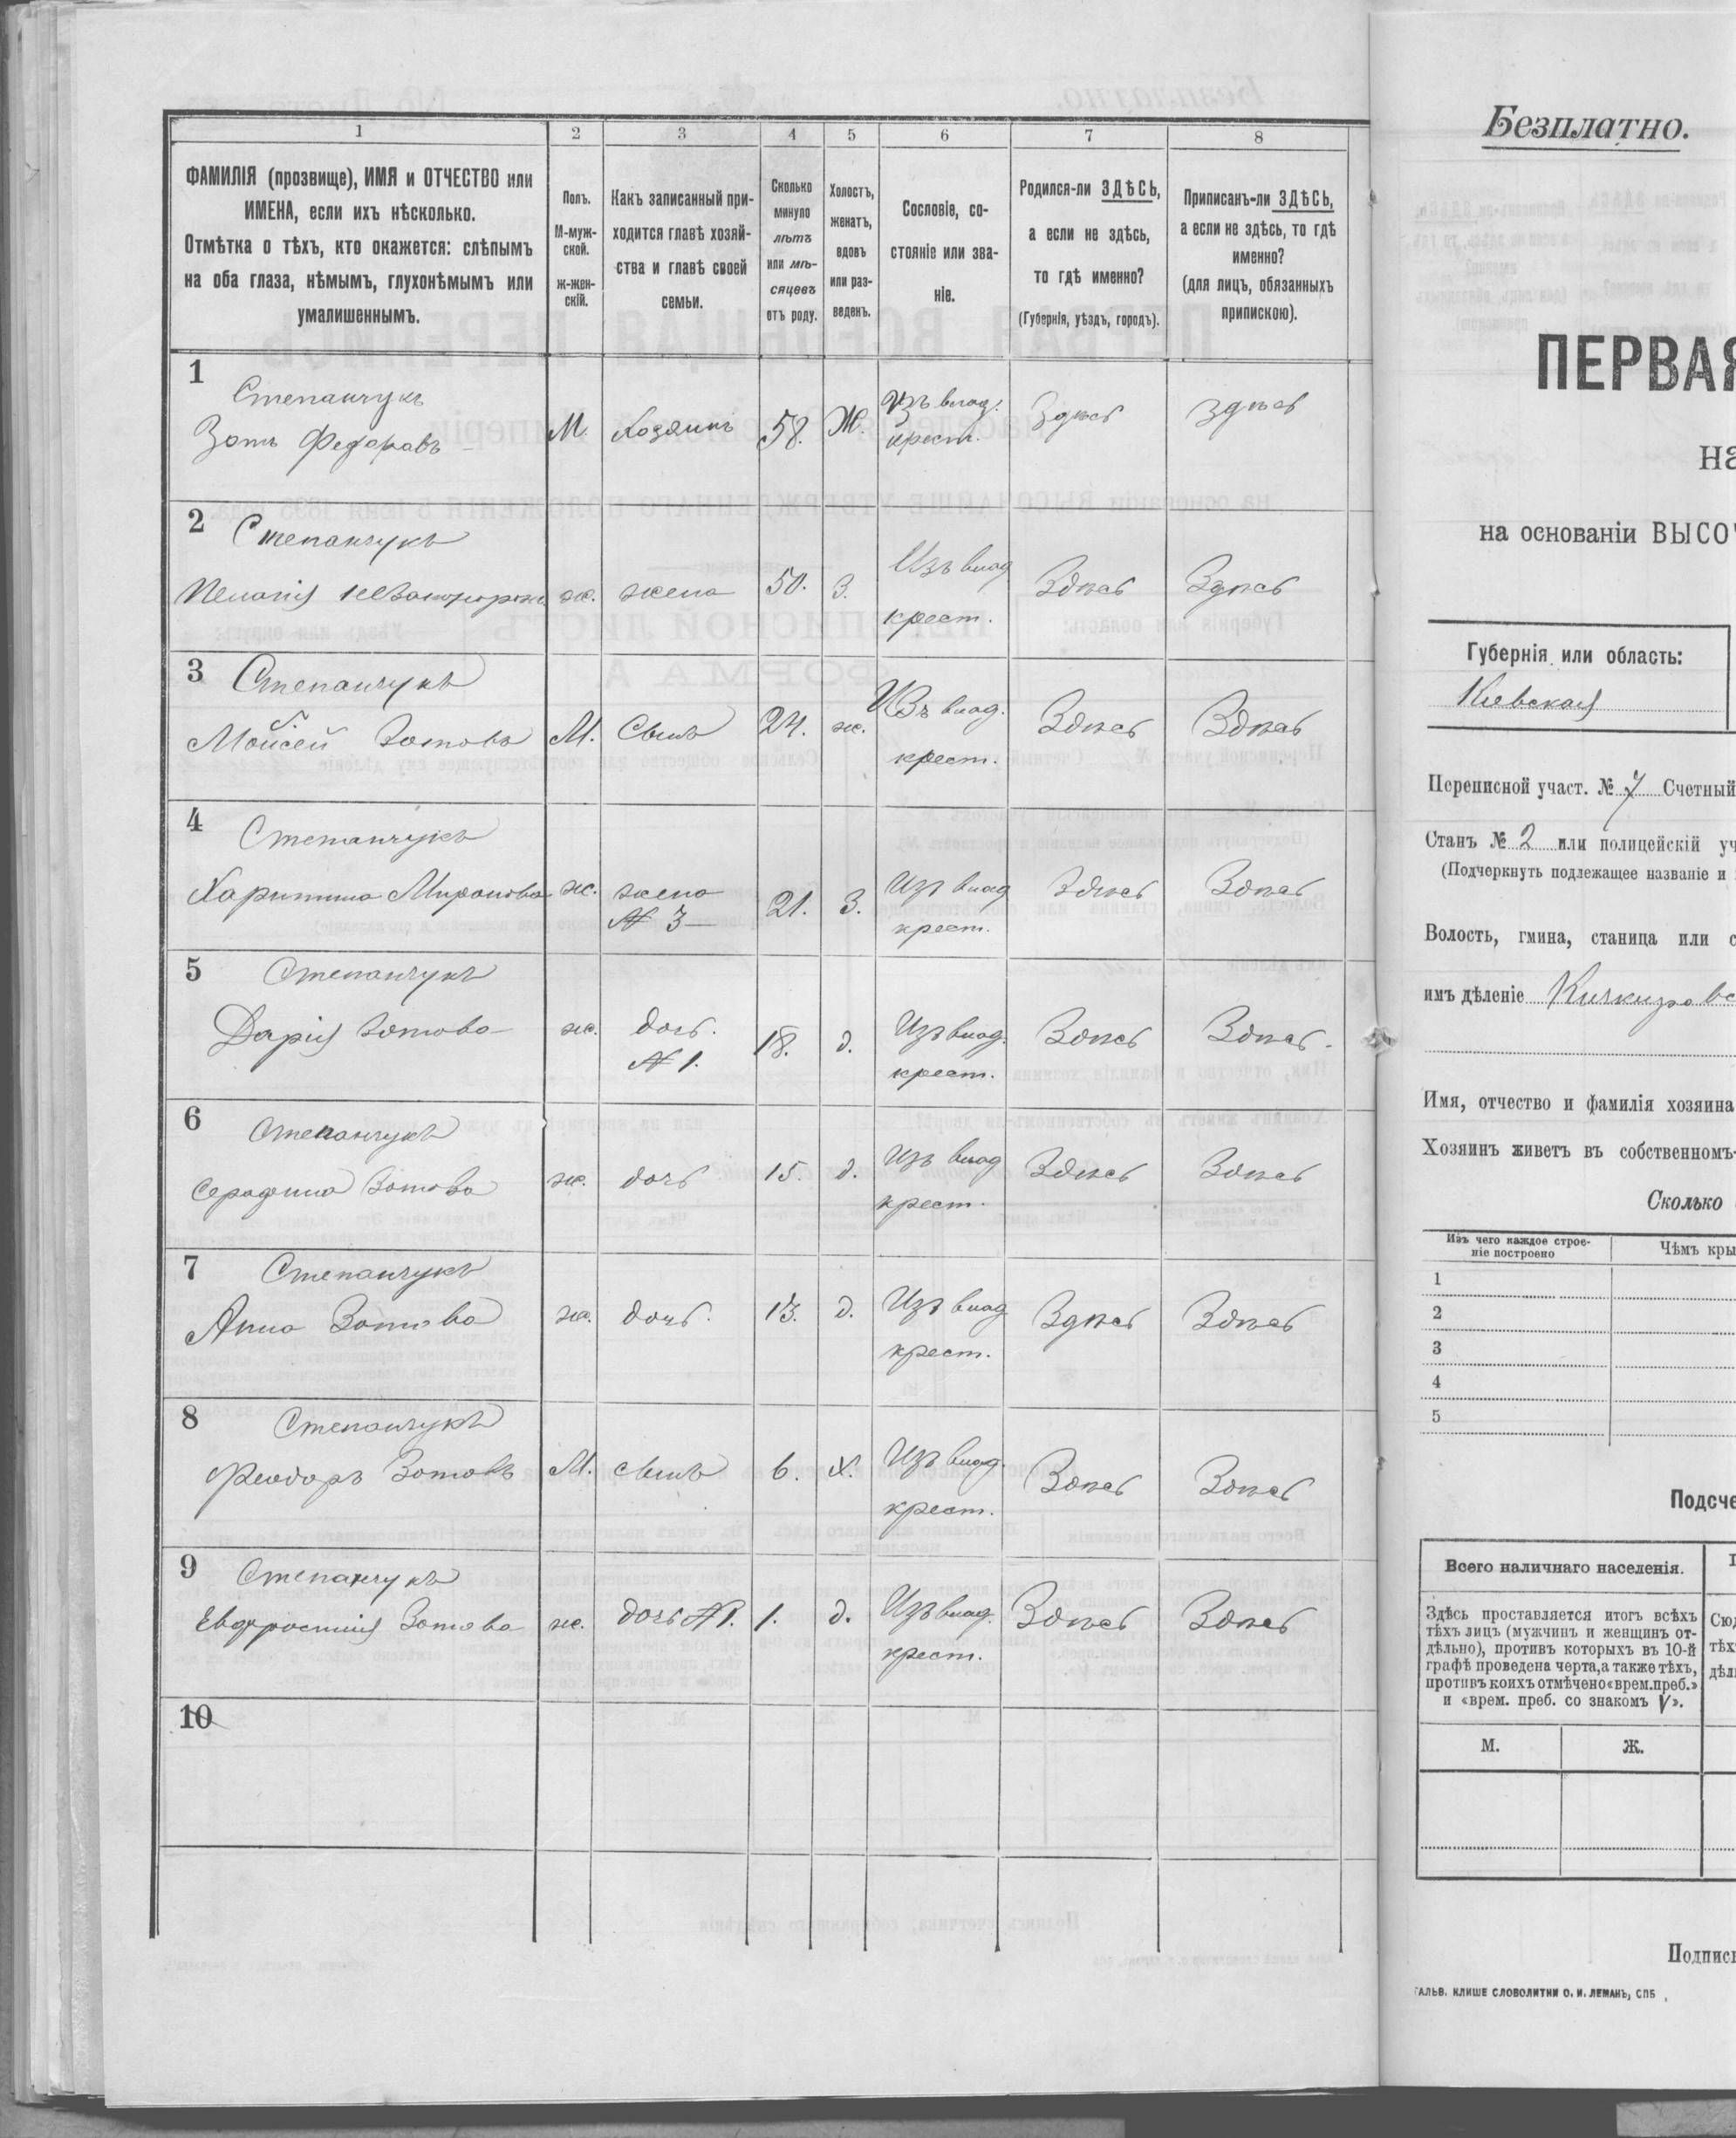 1 2 3 4 5 6 7 8
ФАМИЛІЯ (прозвище), ИМЯ и ОТЧЕСТВО или
ИМЕНА, если ихъ нѣсколько.
Отмѣтка о тѣхъ, кто окажется: слѣпымъ
на оба глаза, нѣмымъ, глухонѣмымъ или
умалишеннымъ.
Полъ.
М-муж-
ской.
ж-жен-
скій.
Какъ записанный при-
ходится главѣ хозяй-
ства и главѣ своей
семьи.
Сколько
минуло
лѣтъ
или мѣ-
сяцевъ
отъ роду.
Холостъ,
женатъ,
вдовъ
или раз-
веденъ.
Сословіе, со-
стояніе или зва-
ніе.
Родился-ли ЗДѢСЬ,
а если не здѣсь,
то гдѣ именно?
(Губернія, уѣздъ, городъ).
Приписанъ-ли ЗДѢСЬ,
а если не здѣсь, то гдѣ
именно?
(для лицъ, обязанныхъ
припискою).
1
Степанчукъ
Зотъ Федоровъ М. Хозяинъ 58. Ж. Изъ влад. Здѣсь Здѣсь
крест.
2 Степанчукъ
Пелагія ж. жена 50. З. Изъ влад Здѣсь Здѣсь
крест.
3 Степанчукъ
Мойсей Зотовъ М. Сынъ 24. ж. Изъ влад. Здѣсь Здѣсь
крест.
4 Степанчукъ
Харитина Миронова ж. жена 21. З. Изъ влад Здѣсь Здѣсь
№ 3 крест.
5 Степанчукъ
Дарія Зотова ж. дочь. 18. д. Изъ влад. Здѣсь Здѣсь.
№ 1. крест.
6 Степанчукъ
Серафима Зотова ж. дочь 15. д. Изъ влад Здѣсь Здѣсь
крест.
7 Степанчукъ
Анна Зотова ж. дочь. 13. д. Изъ влад Здѣсь Здѣсь
крест.
8 Степанчукъ
Феодоръ Зотовъ М. сынъ 6. х. Изъ влад. Здѣсь Здѣсь
крест.
9 Степанчукъ
Евфросинія Зотова ж. дочь № 1. 1. д. Изъ влад. Здѣсь Здѣсь
крест.
10
Безплатно.
ПЕРВАЯ
на основаніи ВЫСОЧ
Губернія или область:
Кіевская
Переписной участ. № 7 Счетный
Станъ № 2 или полицейскій уч
(Подчеркнуть подлежащее названіе и
Волость, гмина, станица или с
имъ дѣленіе
Имя, отчество и фамилія хозяина
Хозяинъ живетъ въ собственномъ-
Сколько
Изъ чего каждое строе-
ніе построено
Чѣмъ кры
1
2
3
4
5
Подсче
Всего наличнаго населенія.
Здѣсь проставляется итогъ всѣхъ
тѣхъ лицъ (мужчинъ и женщинъ от-
дѣльно), противъ которыхъ въ 10-й
графѣ проведена черта, а также тѣхъ,
противъ коихъ отмѣчено «врем. преб.»
и «врем. преб. со знакомъ V».
Сюд
тѣх
дѣл
М. Ж.
Подпис
ГАЛЬВ. КЛИШЕ СЛОВОЛИТНИ О. И. ЛЕМАНЪ, СПБ